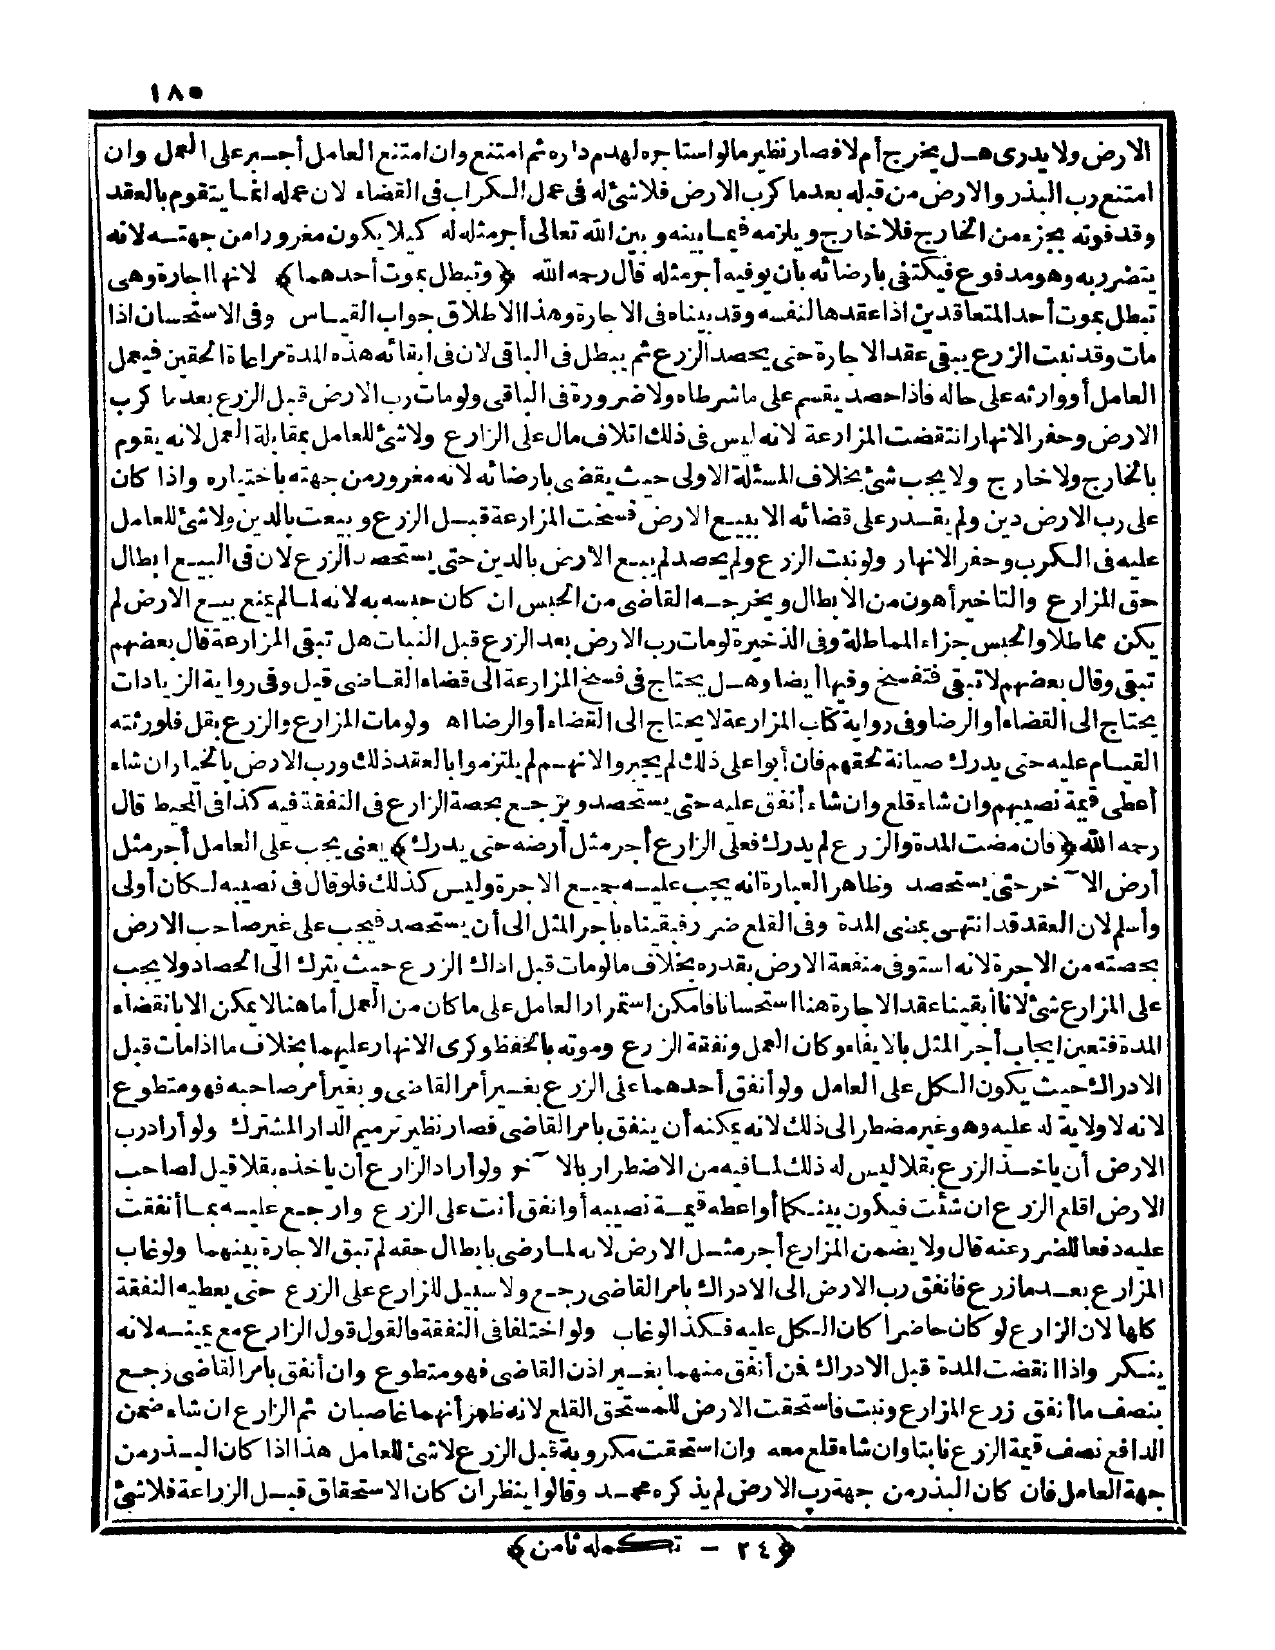 ١٨٥
الارض ولا يدرى هل يخرج أم لا فصار نظير مالو استاجره لهدم داره ثم امتنع وان امتنع العامل أجبر على العمل وان
امتنع رب البذر والارض من قبله بعدما كرب الارض فلا شئ له فى عمل الكراب فى القضاء لان عمله انما يتقوم بالعقد
وقد قوته بجزء من الخارج فلا خارج ويلزمه فيما بينه وبين الله تعالى أجر مثله له كيلا يكون مغرورا من جهته لانه
يتضرر به وهو مدفوع فيكتفى بارضائه بان يوفيه أجر مثله قال رحمه الله ﴿وتبطل بموت أحدهما﴾ لانها اجارة وهى
تبطل بموت أحد المتعاقدين اذا عقدها لنفسه وقد بيناه فى الاجارة وهذا الاطلاق جواب القياس وفى الاستحسان اذا
مات وقد نبت الزرع يبقى عقد الاجارة حتى يحصد الزرع ثم يبطل فى الباقى لان فى ابقائه هذه المدة مراعاة الحقين فيعمل
العامل أو وارثه على حاله فاذا حصد يقسم على ما شرطاه ولا ضرورة فى الباقى ولو مات رب الارض قبل الزرع بعدما كرب
الارض وحفر الانهار انتقضت المزارعة لانه ليس فى ذلك اتلاف مال على الزارع ولا شئ للعامل بمقابلة العمل لانه يقوم
بالخارج ولا خارج ولا يجب شئ بخلاف المسئلة الاولى حيث يقضى بارضائه لانه مغرور من جهته باختياره واذا كان
على رب الارض دين ولم يقدر على قضائه الا ببيع الارض فسخت المزارعة قبل الزرع وبيعت بالدين ولا شئ للعامل
عليه فى الكرب وحفر الانهار ولو نبت الزرع ولم يحصد لم يبع الارض بالدين حتى يستحصد الزرع لان فى البيع ابطال
حق المزارع والتاخير أهون من الابطال ويخرجه القاضى من الحبس ان كان حبسه به لانه لما لم يمنع بيع الارض لم
يكن مماطلا والحبس جزاء المماطلة وفى الذخيرة لو مات رب الارض بعد الزرع قبل النبات هل تبقى المزارعة قال بعضهم
تبقى وقال بعضهم لا تبقى فتفسخ وفيها أيضا وهل يحتاج فى فسخ المزارعة الى قضاء القاضى قيل وفى رواية الزيادات
يحتاج الى القضاء أو الرضا وفى رواية كتاب المزارعة لا يحتاج الى القضاء أو الرضا اه ولو مات المزارع والزرع بقل فلورثته
القيام عليه حتى يدرك صيانة لحقهم فان أبوا على ذلك لم يجبروا لانهم لم يلتزموا بالعقد ذلك ورب الارض بالخيار ان شاء
أعطى قيمة نصيبهم وان شاء قلع وان شاء أنفق عليه حتى يستحصد ويرجع بحصة الزارع فى النفقة فيه كذا فى المحيط قال
رحمه الله ﴿فان مضت المدة والزرع لم يدرك فعلى الزارع أجر مثل أرضه حتى يدرك﴾ يعنى يجب على العامل أجر مثل
أرض الآخر حتى يستحصد وظاهر العبارة انه يجب عليه جميع الاجرة وليس كذلك فلو قال فى نصيبه لكان أولى
وأسلم لان العقد قد انتهى بمضى المدة وفى القلع ضرر فبقيناه باجر المثل الى أن يستحصد فيجب على غير صاحب الارض
بحصته من الاجرة لانه استوفى منفعة الارض بقدره بخلاف ما لو مات قبل ادراك الزرع حيث يترك الى الحصاد ولا يجب
على المزارع شئ لانا أبقينا عقد الاجارة هنا استحسانا فامكن استمرار العامل على ما كان من العمل أما هنا لا يمكن الابانقضاء
المدة فتعين ايجاب أجر المثل بالابقاء وكان العمل ونفقة الزرع ومونة بالحفظ وكرى الانهار عليهما بخلاف ما اذا مات قبل
الادراك حيث يكون الكل على العامل ولو أنفق أحدهما على الزرع بغير أمر القاضى وبغير أمر صاحبه فهو متطوع
لانه لا ولاية له عليه وهو غير مضطر الى ذلك لانه يمكنه أن ينفق بامر القاضى فصار نظير ترميم الدار المشترك ولو أراد رب
الارض أن ياخذ الزرع بقلا ليس له ذلك لما فيه من الاضطرار بالآخر ولو أراد الزارع أن ياخذه بقلا قيل لصاحب
الارض اقلع الزرع ان شئت فيكون بينكما أو اعطه قيمة نصيبه أو انفق أنت على الزرع وارجع عليه بما أنفقت
عليه دفعا للضرر عنه قال ولا يضمن المزارع أجر مثل الارض لانه لما رضى بابطال حقه لم تبق الاجارة بينهما ولو غاب
المزارع بعدما زرع فانفق رب الارض الى الادراك بامر القاضى رجع ولا سبيل للزارع على الزرع حتى يعطيه النفقة
كلها لان الزارع لو كان حاضرا كان الكل عليه فكذا لو غاب ولو اختلفا فى النفقة فالقول قول الزارع مع يمينه لانه
ينكر واذا انقضت المدة قبل الادراك فمن أنفق منهما بغير اذن القاضى فهو متطوع وان أنفق بامر القاضى رجع
بنصف ما أنفق زرع المزارع ونبت فاستحقت الارض للمستحق القلع لانه ظهر أنهما غاصبان ثم الزارع ان شاء ضمن
الدافع نصف قيمة الزرع نابتا وان شاء قلع معه وان استحقت مكروبة قبل الزرع لا شئ للعامل هذا اذا كان البذر من
جهة العامل فان كان البذر من جهة رب الارض لم يذكره محمد وقالوا ينظر ان كان الاستحقاق قبل الزراعة فلا شئ
﴿٢٤ - تكمله ثامن﴾